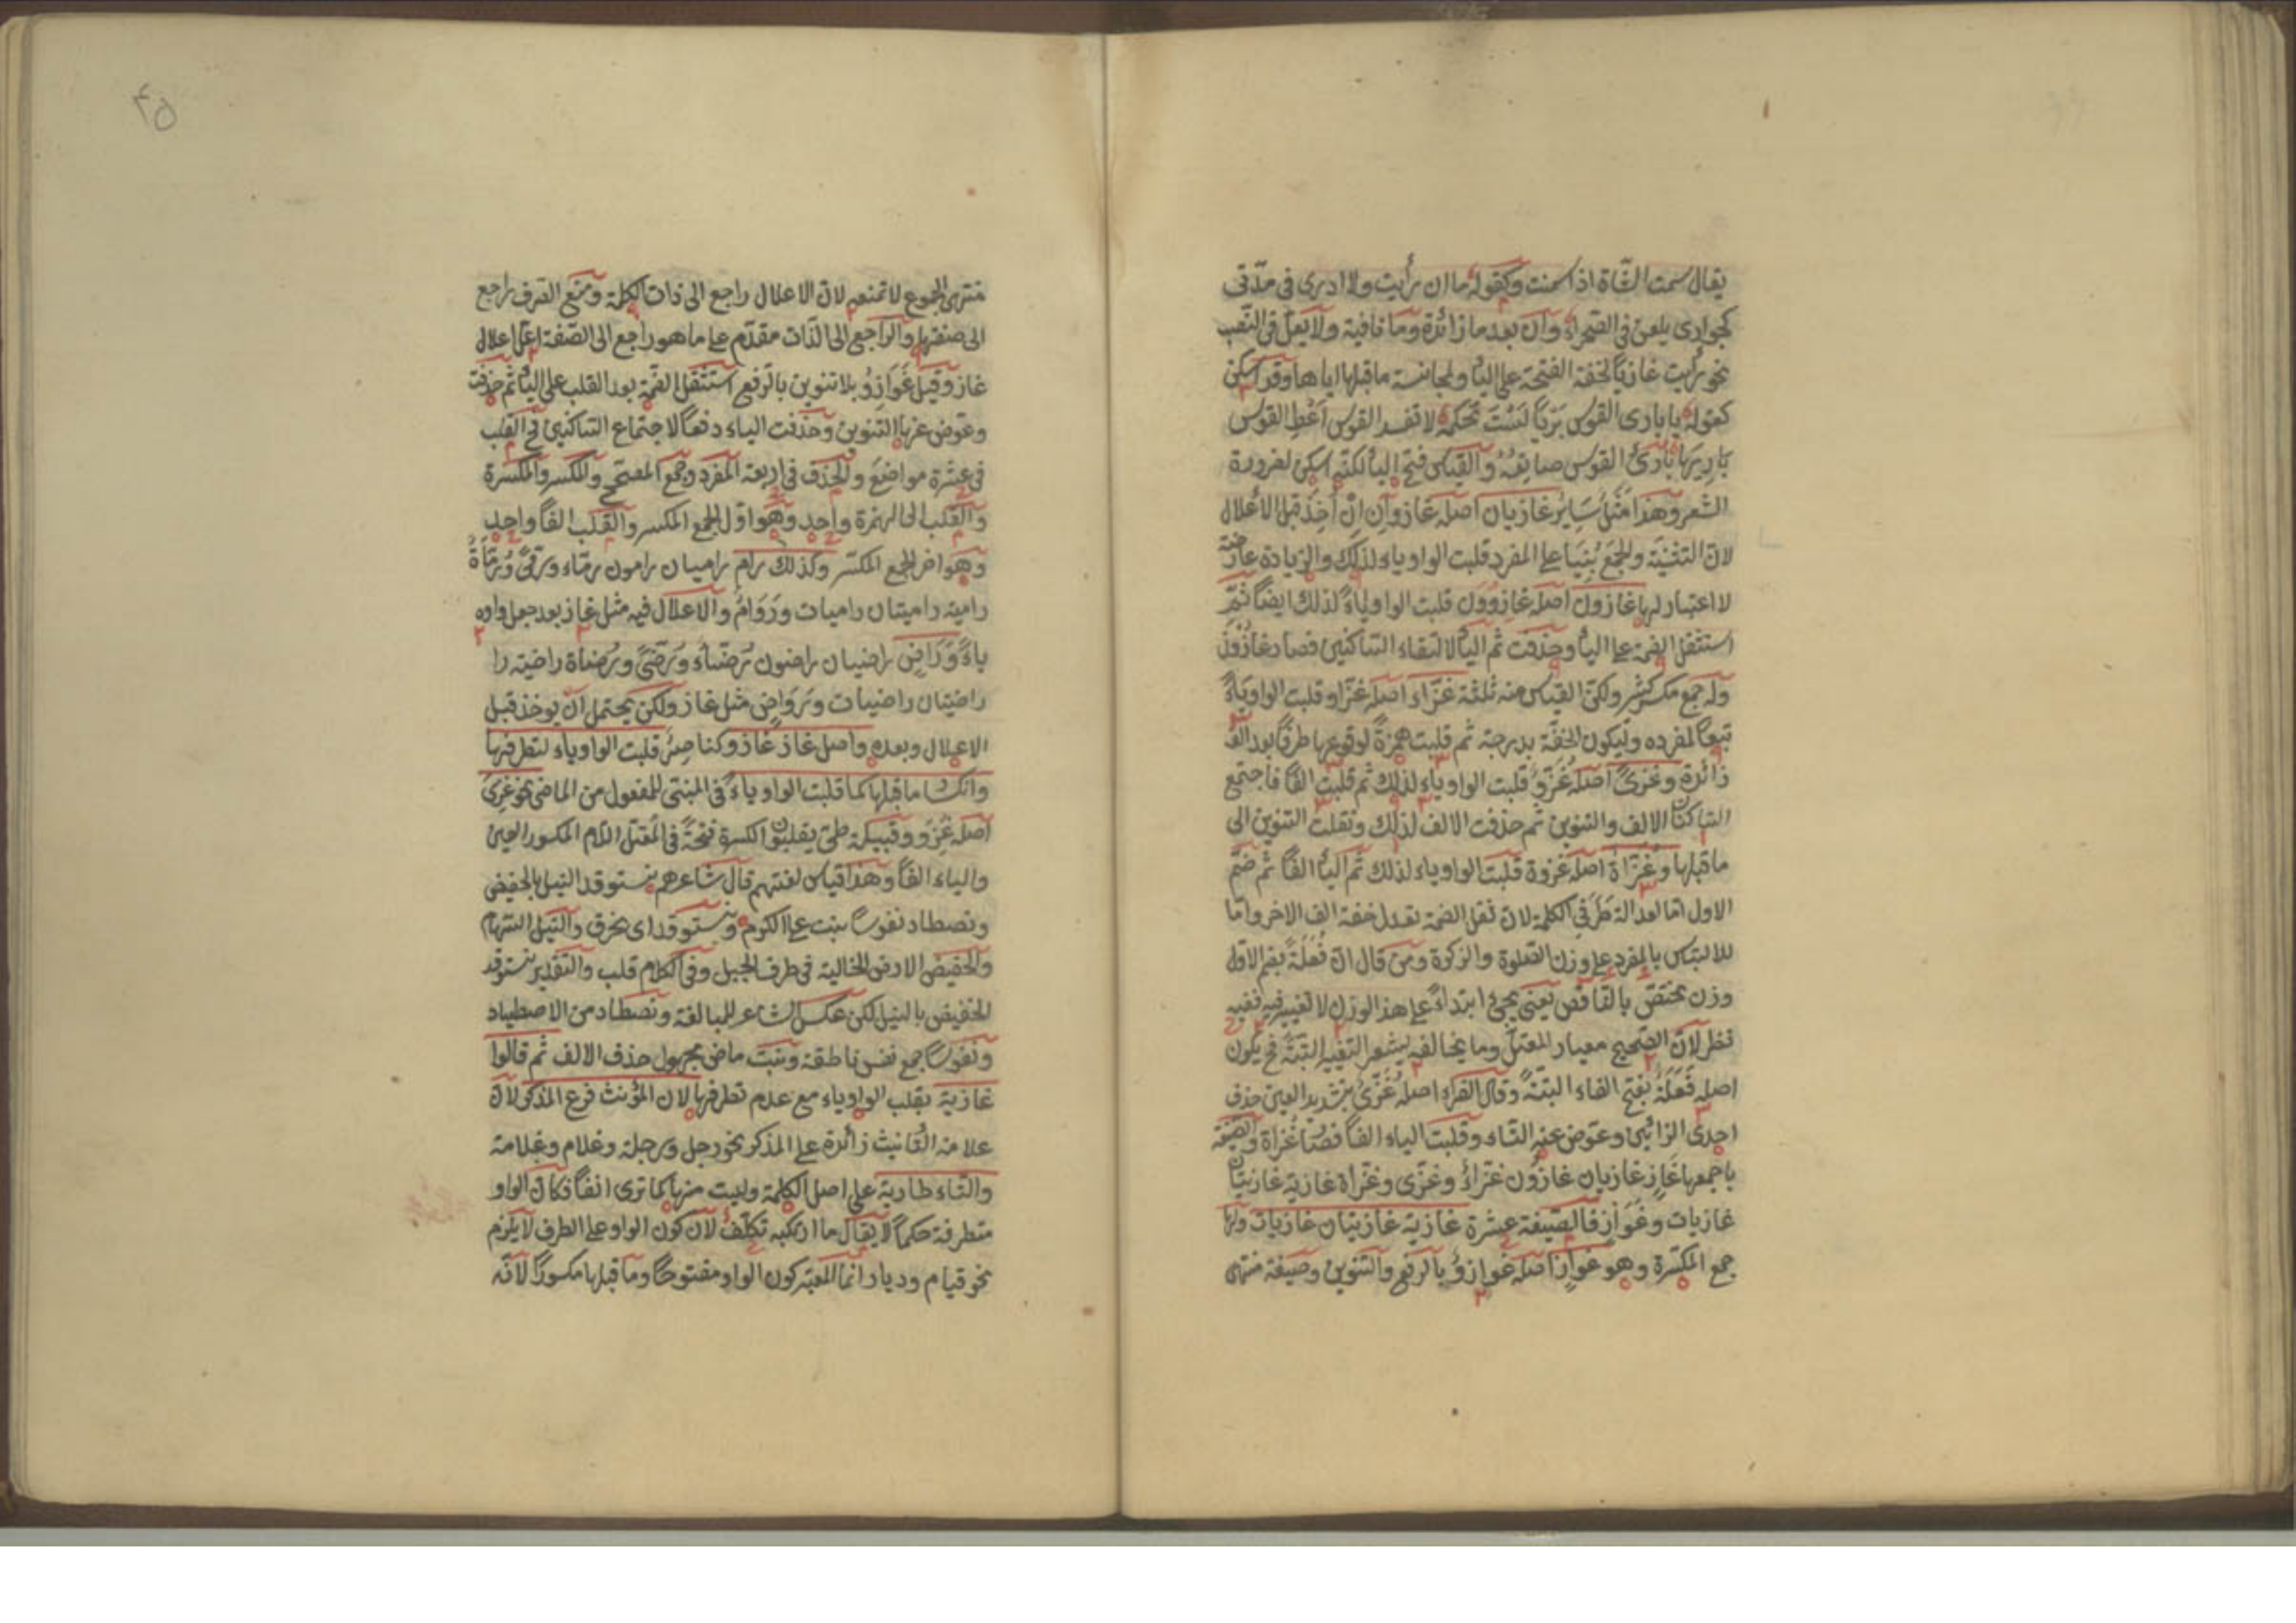 يقال سمت الشّاة اذا سمنت وكقوله ما ان رأيت ولا ادرى فى مدّتى
كجوارى يلعبن فى الصّحراء وان بعد ما زائدة وما نافية ولا يعلّ فى النّصب
نحو رأيت غازيًا لخفّة الفتحة على الياء ولمجانسة ماقبلها اياها وقد اسكن
كقوله يا بارى القوس بريًا لَسْتَ تحكمه لا تفسد القوس اَعْطِ القوس
بارِيهَا بارئ القوس صانعه والقياس فتح الياء لكنّه اسكن لضرورة
الشّعر وهذا مَثَل سَايِر غازيان اصله غازوان اِنْ اُخِذَ قبل الاعلال
لانّ التثنية والجمع بُنِيَا على المفرد قلبت الواو ياء لذلك والزيادة عارضة
لا اعتبار لها غازون اصله غازِوُون قلبت الواو ياءً لذلك ايضًا ثمّ
استثقل الضمة على الياء وحذفت ثم الياء لالتقاء السّاكنين فصار غازُونَ
وله جمع مكسّر كثير ولكن القياس منه ثلثة غزّاء اصله غزّاو قلبت الواو ياءً
تبعًا لمفرده وليكون الخفّة بدرجة ثم قلبت همزةً لوقوعها طرفًا بعد الف
زائدة وغزىً اصله غُزّوٌ قلبت الواو ياء لذلك ثم قلبت الفًا فاجتمع
السّاكنان الالف والتنوين ثم حذفت الالف لذلك ونقلت التنوين الى
ماقبلها وغُزاة اصله غزوة قلبت الواو ياء لذلك ثم الياء الفًا ثم ضمّ
الاول امّا لعدالة طَرَفَىِ الكلمة لانّ ثقل الضمة تعدل خفة الف الاخر وامّا
للالتباس بالمفرد على وزن الصّلوة والزكوة ومن قال انّ فُعَلَةً بضم الاول
وزن مختصّ بالنّاقص يعنى يجئ ابتداءً على هذا الوزن لا تغيير فيه ففيه
نظر لانّ الصّحيح معيار المعتلّ وما يخالفه يشعر التغيير البتّةَ فح يكون
اصله فَعَلَةٌ بفتح الفاء البتّةً وقال الفرّاء اصله غُزّىٌ بتشديد العين حذف
احدى الزائين وعوّض عنه التّاء وقلبت الياء الفًا فصار غُزاة والصّيغة
باجمعها غازٍ غازيان غازُون غزّاءٌ وغزّى وغُزاة غازية غازيتان
غازيات وغَوَازٍ فالصّيغة عشرة غازية غازيتان غازيات ولها
جمع المكسّرة وهو غوازٍ اصله غوازِوٌ بالرّفع والتّنوين وصيغة منتهى
۴۵
منتهى الجموع لا تمنعه لانّ الاعلال راجع الى ذات الكلمة ومنع الصّرف راجع
الى صفتها والرّاجع الى الذّات مقدّم على ما هو راجع الى الصّفة اعلّ اعلال
غاز وقيل غَوَازِوُ بلا تنوين بالرّفع استثقل الضّمّة بعد القلب على الياء ثم حذفت
وعوّض عنها التنوين وحذفت الياء دفعًا لاجتماع السّاكنين فى القلب
فى عشرة مواضعَ والحذف فى اربعة المفرد وجمع المصحّح والمكسر والمكسّرة
والقلب الى الهمزة واحد وهو اوّل الجمع المكسر والقلب الفًا واحد
وهو اخر الجمع المكسّر وكذلك رامٍ راميان رامون رمّاء ورمّىً ورُمَاةٌ
رامية راميتان راميات ورَوَامٌ والاعلال فيه مثل غاز بعد جعل واوه
ياءً وَرَاضٍ راضيان راضون رُضّاء وَرُضّىً ورُضاة راضية را
راضيتان راضيات ورَوَاضٍ مثل غاز ولكن يحتمل ان يوخذ قبل
الاعلال وبعده واصل غاز غازِوٌ وكنا صِرٌ قلبت الواو ياء لتطرفها
وانكسار ماقبلها كما قلبت الواو ياءً فى المبنى للمفعول من الماضى نحو غُزِىَ
اصله غُزِوَ وقبيلة طىّ يقلبون الكسرة فتحةً فى المعتل اللام المكسور العين
والياء الفًا وهذا قياس لغتهم قال شاعرهم نستوقد النبل بالحضيض
ونصطاد نفوسًا بنت على الكرم ونستوقد اى نحرق والنّبل السّهام
والحضيض الارض الخالية فى طرف الجبل وفى الكلام قلب والتّقدير نستوقد
الحضيض بالنبل لكن عكس الشاعر للمبالغة ونصطاد من الاصطياد
ونفوسًا جمع نفس ناطقة وبنت ماض مجهول حذف الالف ثم قالوا
غازية بقلب الواو ياء مع عدم تطرفها لان المؤنث فرع المذكر لانّ
علامة التّانيث زائدة على المذكر نحو رجل ورجلة وغلام وغلامة
والتّاء طارية على اصل الكلمة وليست منها كما ترى انفًا فكان الواو
متطرفة حكمًا لا يقال ما ارتكبه تكلّف لان كون الواو على الطرف لا يلزم
نحو قيام وديار انما المعتبر كون الواو مفتوحًا وما قبلها مكسورًا لانّه